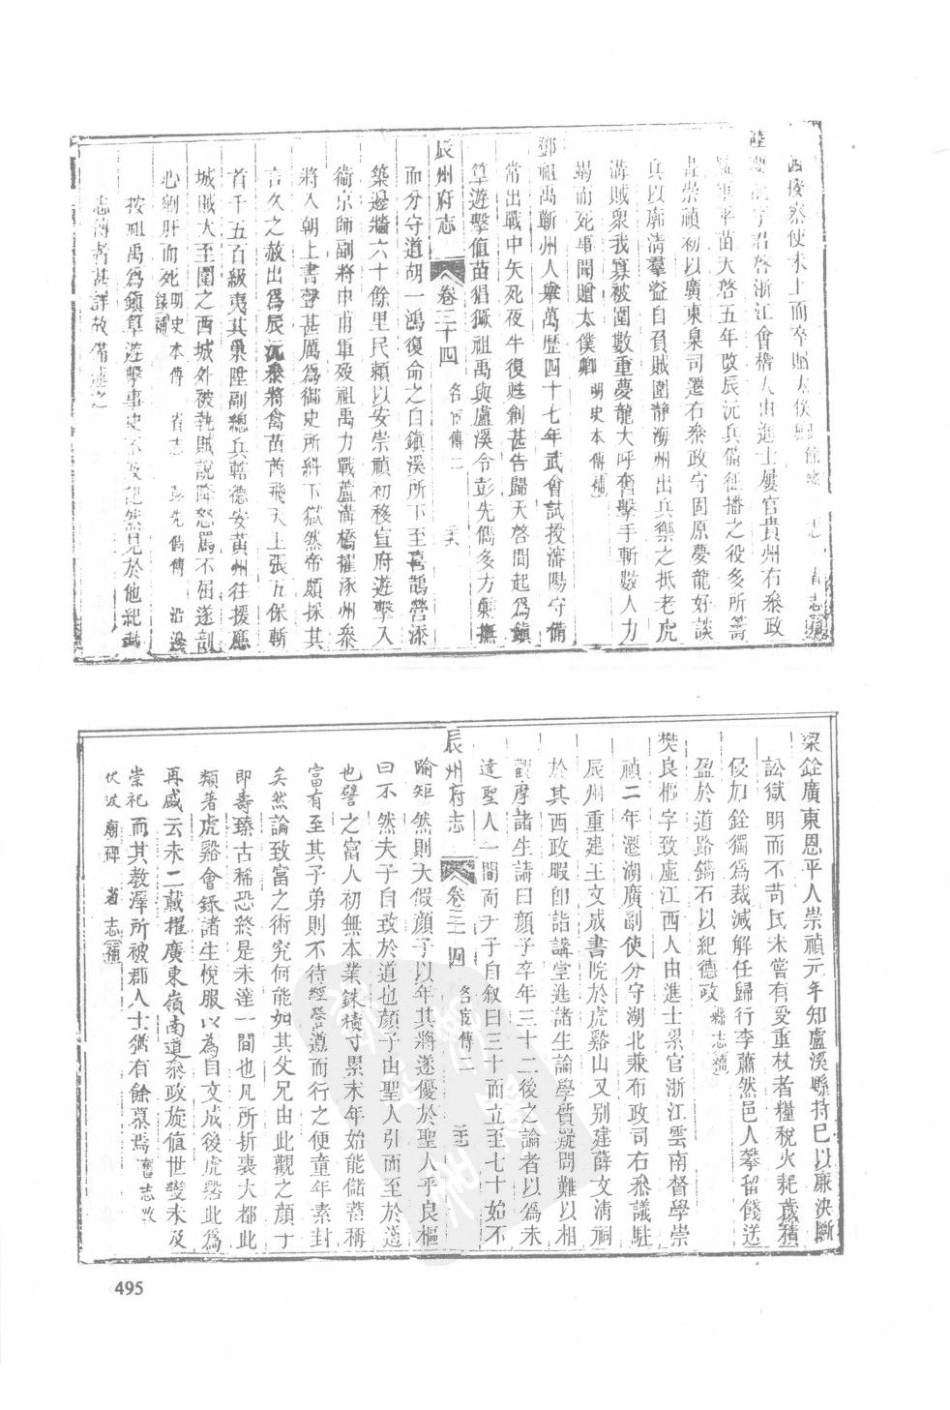 西按察使未上而卒贈太僕卿
字君啓浙江會稽人由進士累官貴州右叅政
苗大啓五年改辰沅兵備征播之役多所籌
崇禎初以廣東臬司遷右叅政守固原慶龍好談
兵以廓清羣盜自負賊圍靜海州出兵禦之抵老虎
溝賊衆我寡被圍數重夢龍大呼奮擊手斬數人力
竭而死事聞贈太僕卿 明史本傳補
鄧祖禹蘄州人舉萬歴四十七年武會試授瀋陽守備
常出戰中矢死夜半復甦創甚告歸天啓間起爲鎮
筸遊擊值苗猖獗祖禹與盧溪令彭先儁多方剿撫
辰州府志 卷三十四 名宦傳二 三六
而分守道胡一鴻復命之自鎮溪所下至喜鵲營添
築邊牆六十餘里民賴以安崇禎初移宣府遊擊入
衛京師副將申甫軍歿祖禹力戰蘆溝橋擢涿州叅
將入朝上書言甚厲爲御史所糾下獄然帝頗採其
言久之赦出爲辰沅叅將禽苗酋飛天上張五保斬
首千五百級夷其巢陞副總兵轄德安黃州往援應
城賊大至圍之西城外被執賊說降怒罵不屈遂剖
心剜肝而死 明史本傳 省志 彭先儁傳 沿邊錄補
按祖禹爲鎮筸遊擊事史不及記然見於他紀載
志傳者甚詳故備述之
梁銓廣東恩平人崇禎元年知盧溪縣持已以廉決斷
訟獄明而不苛民未嘗有受重杖者糧稅火耗歲積
侵加銓獨爲裁減解任歸行李蕭然邑人攀留餞送
盈於道路鐫石以紀德政 縣志補
樊良樞字致虛江西人由進士累官浙江雲南督學崇
禎二年遷湖廣副使分守湖北兼布政司右叅議駐
辰州重建王文成書院於虎谿山又别建薛文清祠
於其西政暇即詣講堂進諸生論學質疑問難以相
觀摩諸生請曰顏子卒年三十二後之論者以爲未
達聖人一間而夫子自叙曰三十而立至七十始不
辰州府志 卷三十四 名宦傳二 三七
踰矩然則天假顏子以年其將遂優於聖人乎良樞
曰不然夫子自致於道也顏子由聖人引而至於道
也譬之富人初無本業銖積寸累末年始能儲蓄稱
富有至其子弟則不待經營遵而行之便童年素封
矣然論致富之術究何能如其父兄由此觀之顏子
即壽臻古稀恐終是未達一間也凡所折衷大都此
類著虎谿會錄諸生悅服以為自文成後虎谿此爲
再盛云未二載擢廣東嶺南道叅政旋值世變未及
崇祀而其教澤所被郡人士猶有餘慕焉 舊志
伏波廟碑 省志補
495